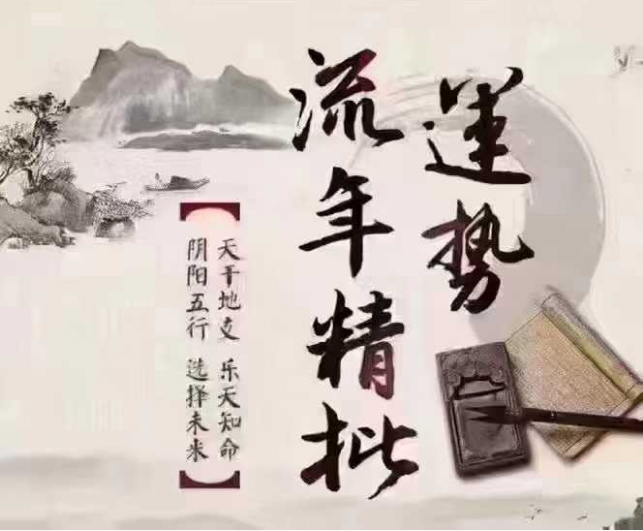 運势
流年精批
天干地支 乐天知命
阴阳五行 选择未来